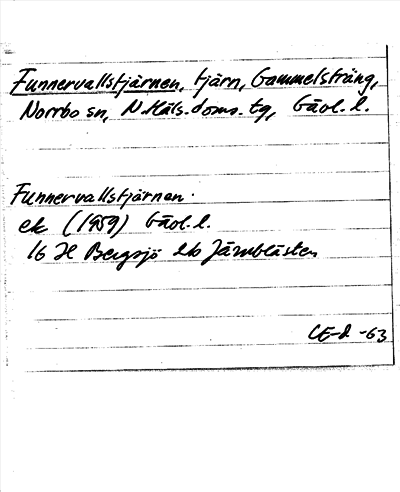 Funnervallstjärnen, tjärn, Gammelsträng,
Norrbo sn, N.Häls. doms. tg, Gävl. l.
Funnervallstjärnen
ek (1959) Gävl. l.
16 H Bergsjö 2b Järnblästen
CE-D. -63